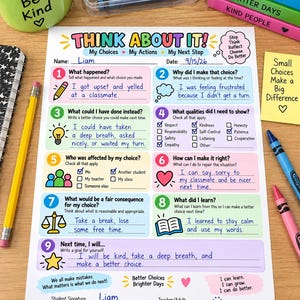 Be
Kind
DER DAYS
KIND PEOPLE
THINK ABOUT IT!
My Choices • My Actions • My Next Step
Stop
Think
Reflect
Choose
Do Better
Name: Liam
Date: 9/15/26
1 What happened?
Tell what happened and what choice you made.
I got upset and yelled
at a classmate.
2 Why did I make that choice?
What was I thinking or feeling at the time?
I was feeling frustrated
because I didn't get a turn.
3 What could I have done instead?
Write a better choice you could make next time.
I could have taken
a deep breath, asked
nicely, or waited my turn.
4 What qualities did I need to show?
Check all that apply
Respect
Kindness
Honesty
Responsibility
Self-Control
Patience
Safety
Cooperation
Empathy
Other
5 Who was affected by my choice?
Check all that apply
Me
Another student
My teacher
My class
Someone else
6 How can I make it right?
What can I do to repair the situation?
I can say sorry to
my classmate and be nicer
next time.
7 What would be a fair consequence
for my choice?
Think about what is reasonable and appropriate
Take a break, lose
some free time.
8 What did I learn?
What can I learn from this so I can make a better
choice next time?
I learned to stay calm
and use my words.
9 Next time, I will...
Write a goal for yourself
I will be kind, take a deep breath, and
make a better choice
We all make mistakes.
What matters is what we do next!
Better Choices
Brighter Days
I can learn.
I can grow.
I can do better.
Student Signature Liam
Small
Choices
Make a
Big
Difference